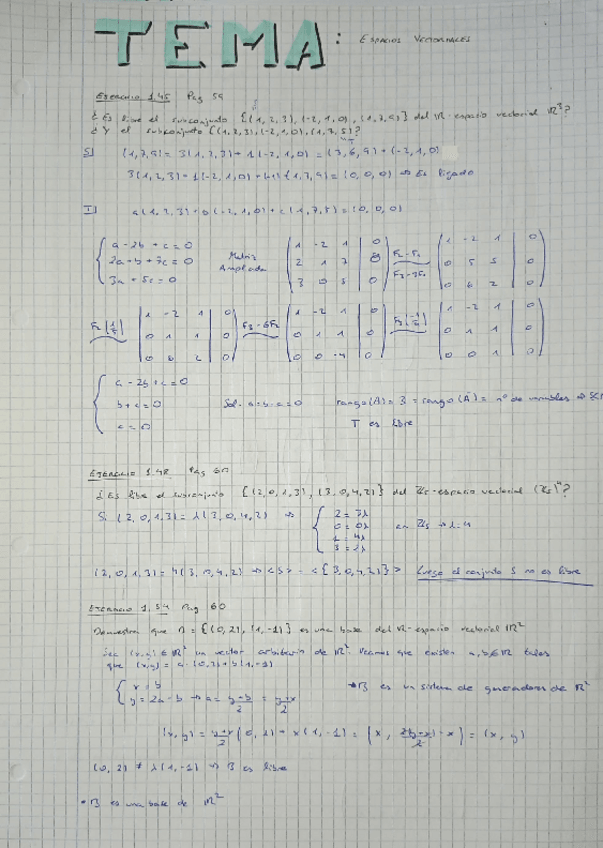 TEMA: ESPACIOS VECTORIALES
EJERCICIO 1.45 Pag 59
¿Es libre el subconjunto {(1, 2, 3), (-2, 1, 0), (1, 7, 9)} del R-espacio vectorial R³?
¿Y el subconjunto {(1,2,3), (-2,1,0), (1,7,5)}?
S] (1,7,9) = 3(1,2,3) + 1(-2,1,0) = (3,6,9) + (-2,1,0)
3(1,2,3) + 1(-2,1,0) + (-1)(1,7,9) = (0,0,0) ⇒ Es ligado
a(1,2,3) + b(-2,1,0) + c(1,7,5) = (0,0,0)
a - 2b + c = 0
2a + b + 7c = 0
3a + 5c = 0
Matriz
Ampliada
1 -2 1 0
2 1 7 0
3 0 5 0
1 -2 1 0
0 5 5 0
0 6 2 0
1 -2 1 0
0 1 1 0
0 6 2 0
F3-6F2
1 -2 1 0
0 1 1 0
0 0 -4 0
1 -2 1 0
0 1 1 0
0 0 1 0
a - 2b + c = 0
b + c = 0
c = 0
Sol. a=b=c=0
rango(A) = 3 = rango(Ā) = nº de variables ⇒
T es libre
EJERCICIO 1.48 Pag 60
¿Es libre el subconjunto {(2,0,1,3), (3,0,4,2)} del Z5-espacio vectorial (Z5)⁴?
Si (2,0,1,3) = λ(3,0,4,2) ⇒
2 = 3λ
0 = 0λ
1 = 4λ
3 = 2λ
en Z5 ⇒ λ=4
(2,0,1,3) = 4(3,0,4,2) ⇒ <S> = <{3,0,4,2)}> Luego el conjunto S no es libre
EJERCICIO 1.54 Pag 60
Demuestra que B = {(0,2), (1,-1)} es una base del R-espacio vectorial R²
Sea (x,y) ∈ R² un vector arbitrario de R². Veamos que existen a,b∈R tales
que (x,y) = a·(0,2) + b(1,-1)
x = b
y = 2a - b ⇒ a = y+b/2 = y+x/2
B es un sistema de generadores de R²
(x,y) = y+x/2 (0,2) + x(1,-1) = (x, 2(y+x)/2 - x) = (x,y)
(0,2) ≠ λ(1,-1) ⇒ B es libre
• B es una base de R²